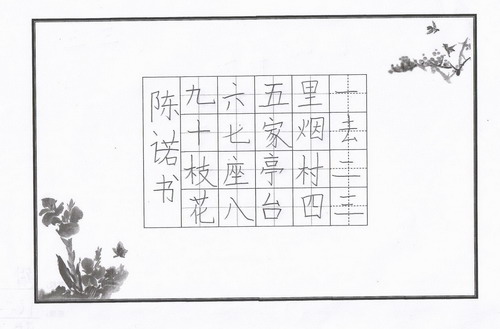 一去二三
里烟村四
五家亭台
六七座八
九十枝花
陈诺书